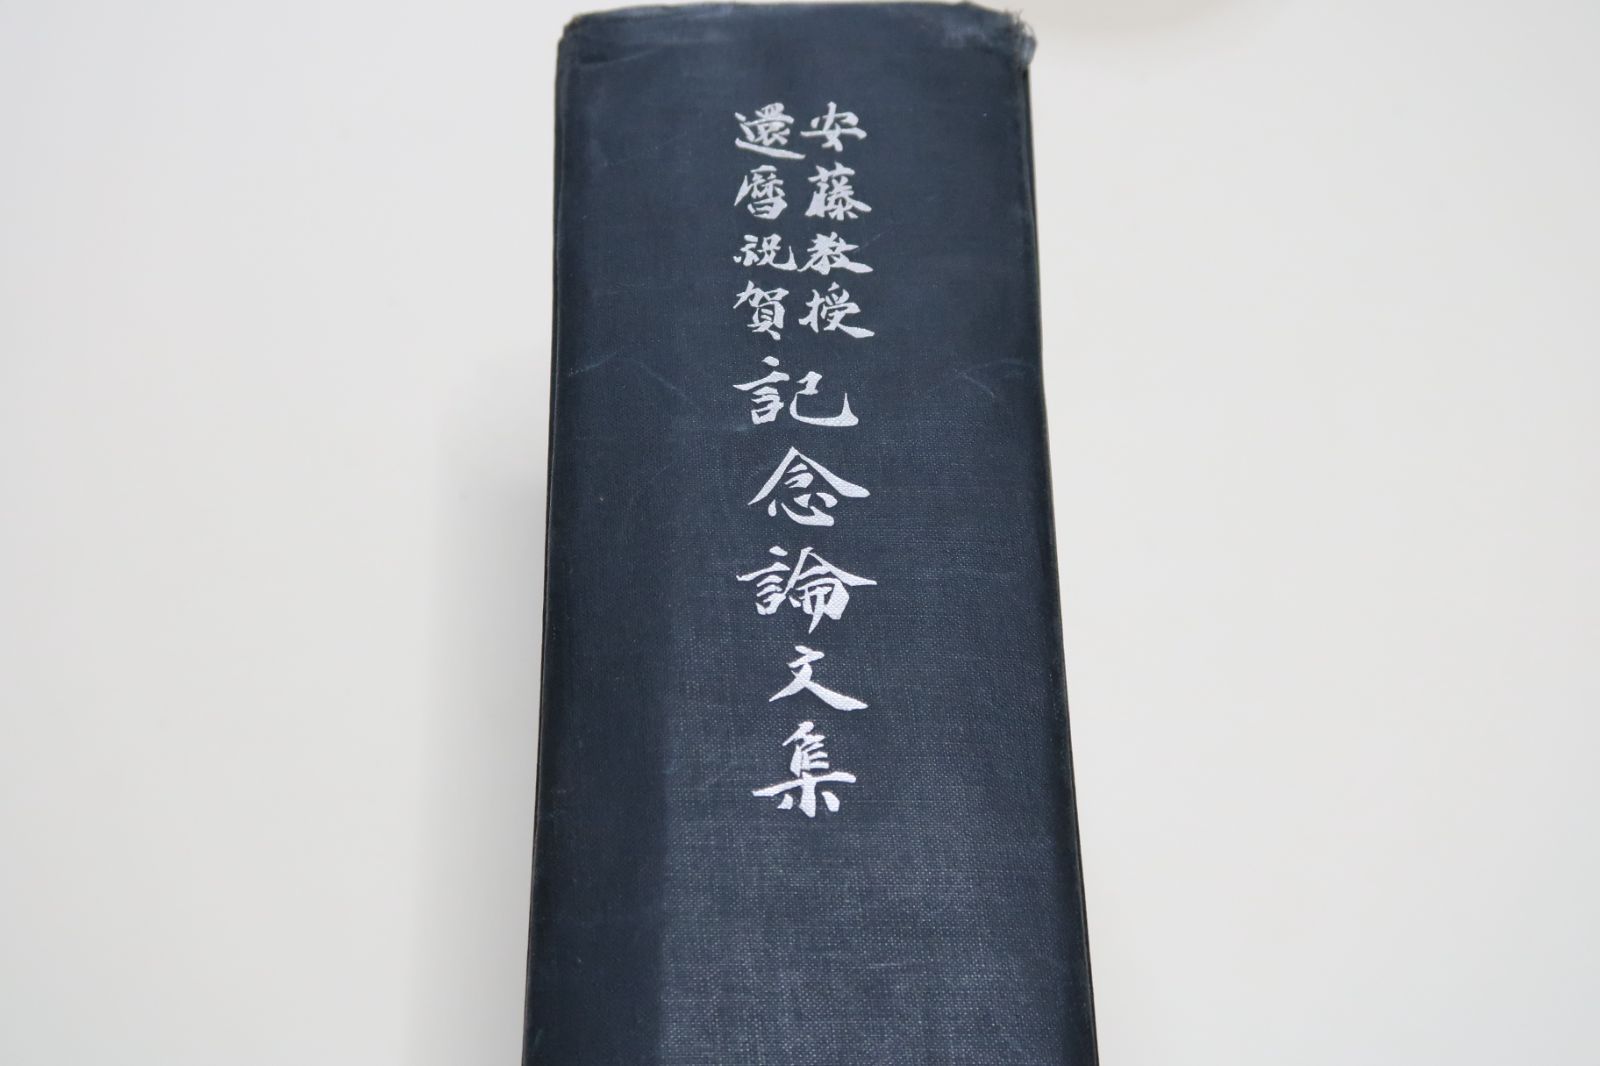 安藤教授
還暦祝賀
記念論文集